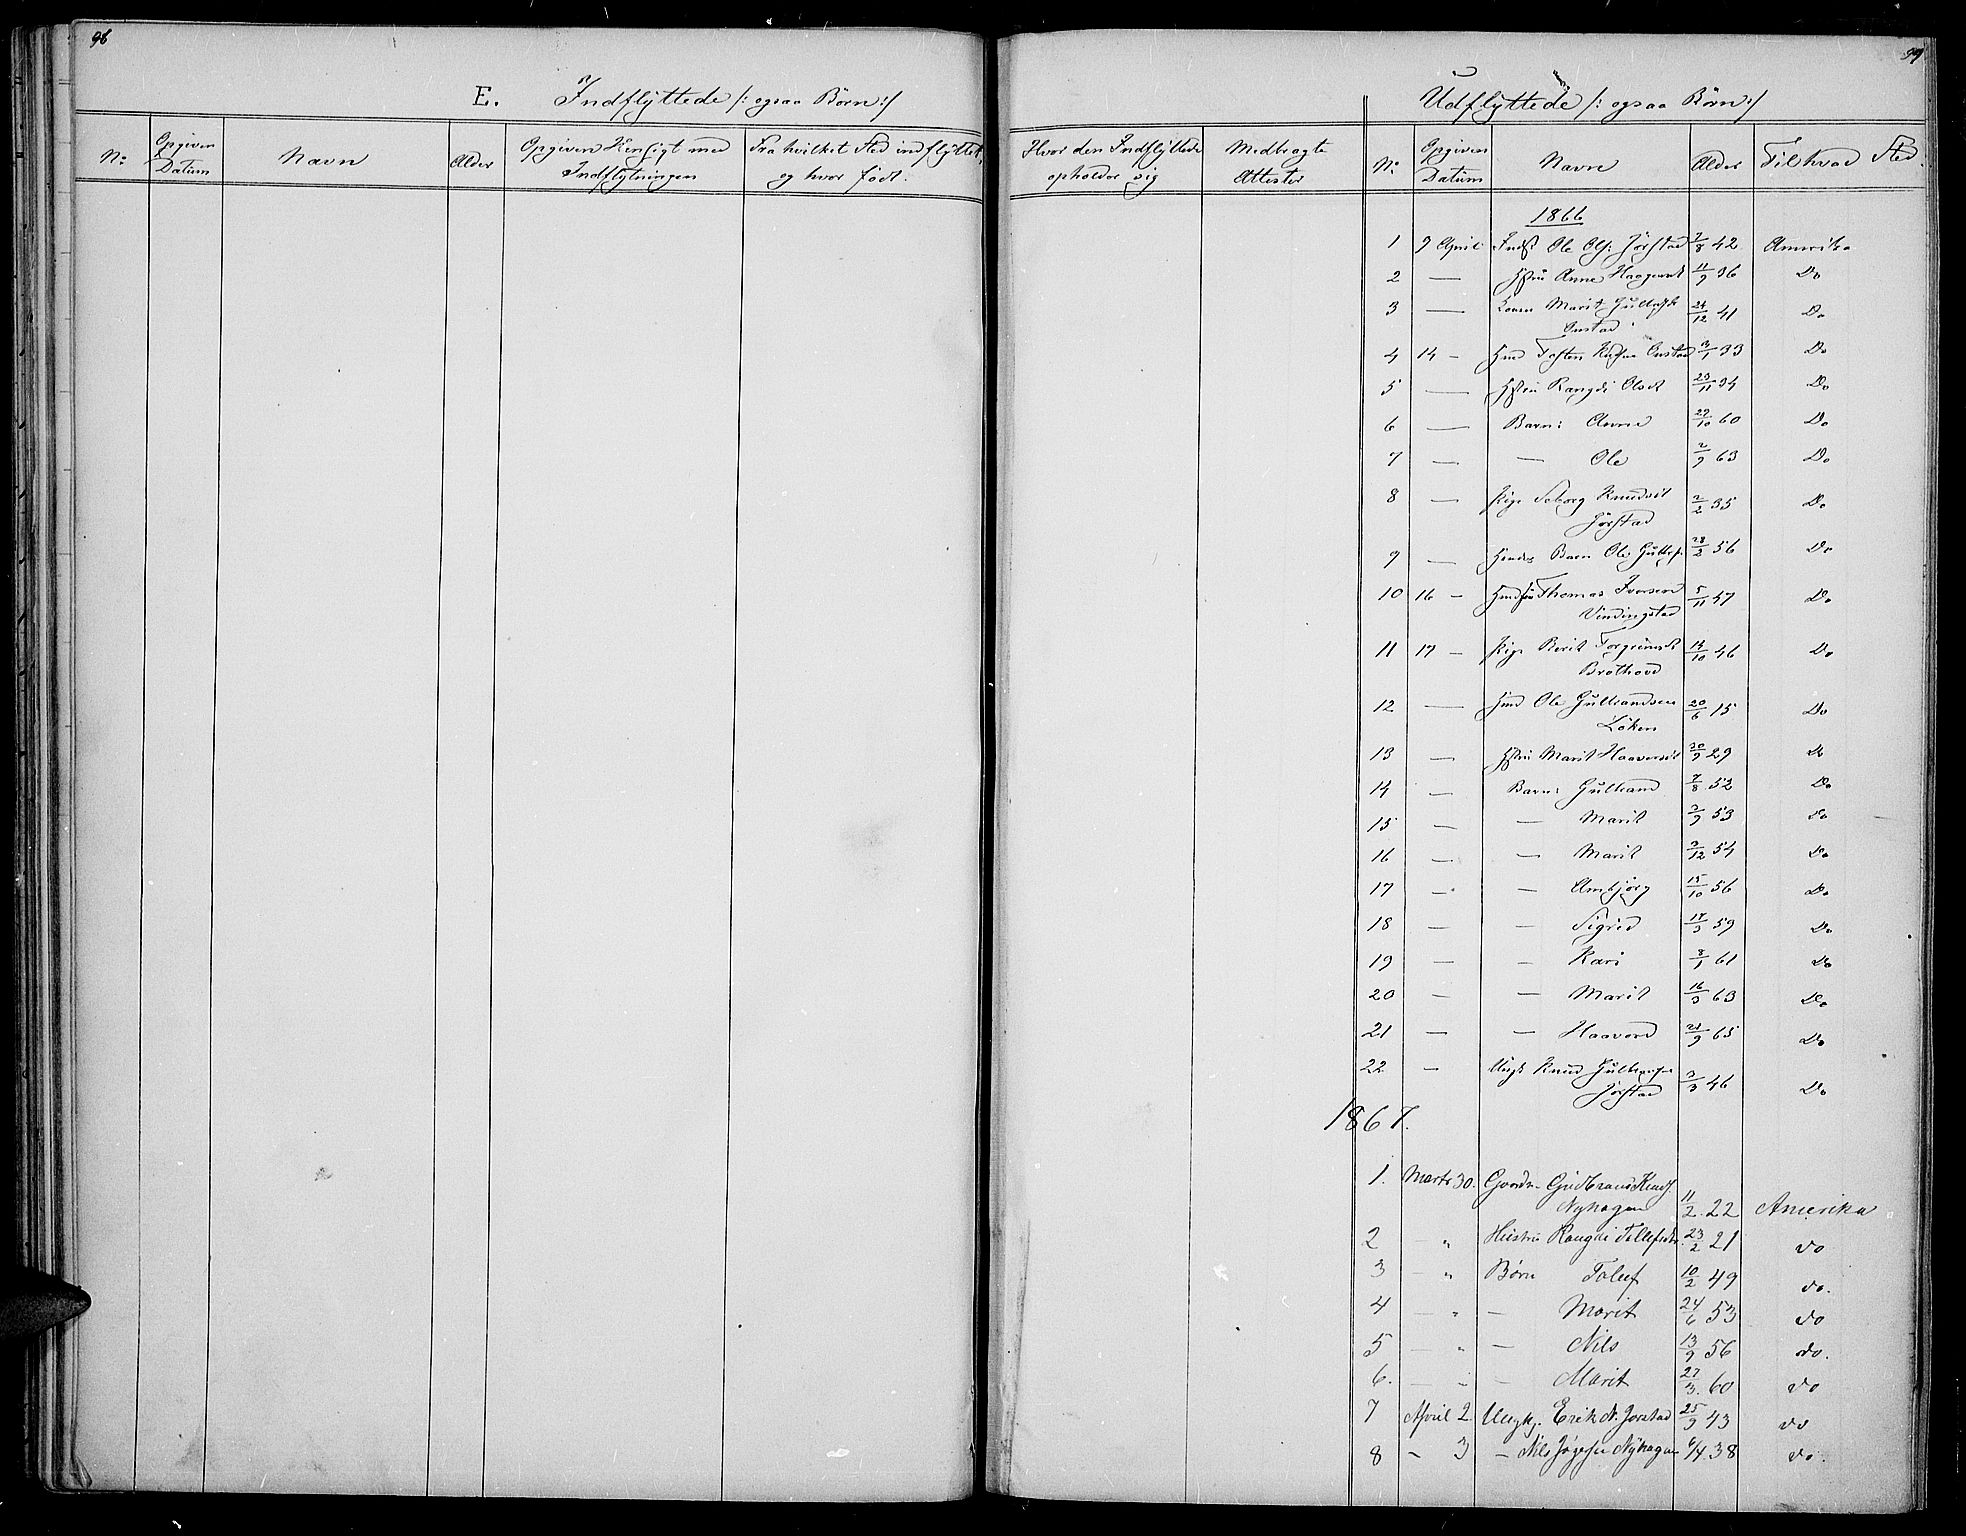 98
E. Indflyttede /: ogsaa Børn:/
No Opgiven Datum Navn Alder Opgiven Hensigt med Indflytningen Fra hvilket Sted indflyttet, og hvor født.
99
Udflyttede /: ogsaa Børn:/
Hvor den Indflyttede opholder sig Medbragte Attester No Opgiven Datum Navn Alder Til hvad Sted.
1866
1 9 April Inds: Ole Ols: Jørstad 7/8 42 Amerika
2 — Hstru Anne Haagensd 11/9 36 Do
3 — Marit Gulbrsdt 24/12 41 Do
Onstad
4 14 - Gmd Tosten Onstad 3/1 33 Do
5 — Hstru Rangdi Olsdt 23/11 34 Do
6 — Barn: Anne 29/10 60 Do
7 — — Ole 2/9 63 Do
8 — Pige Seborg Knudsdt 2/2 35 Do
Jørstad
9 — Hendes Barn Ole Gulbrs: 28/2 56 Do
10 16 - Thomas Iversen 5/11 47 Do
Vindingstad
11 17 - Pige Berit Torgrimsdt 14/10 46 Do
Brathovd
12 — Gmd Ole Gulbrandsen 20/6 15 Do
Løken
13 — Hstru Marit Haavorsdt 30/9 29 Do
14 — Barn: Gulbrand 7/8 52 Do
15 — — Marit 2/9 53 Do
16 — — Marit 3/12 54 Do
17 — — Ambjørg 15/10 56 Do
18 — — Sigrid 17/3 59 Do
19 — — Kari 8/1 61 Do
20 — — Marit 16/3 63 Do
21 — — Haavord 21/9 65 Do
22 — Ungk Knud Gulbransen 3/3 46 Do
Jørstad
1867.
1. Marts 30. Gaardm. Gudbrand Knuds
Nyhagen 11/2 22 Amerika
2 — " Hustru Rangdi Tollefsdtr. 23/2 21 do
3 — " Børn Toluf 10/2 49 do.
4 — " — Marit 24/6 53 do
5 — " — Nils 13/9 56 do.
6. — " — Marit 27/3. 60 do
7 April 2. Ungkj. Erik N. Jorstad 25/9 43 do
8 - 3 — Nils Nyhagen 6/4 38 do.